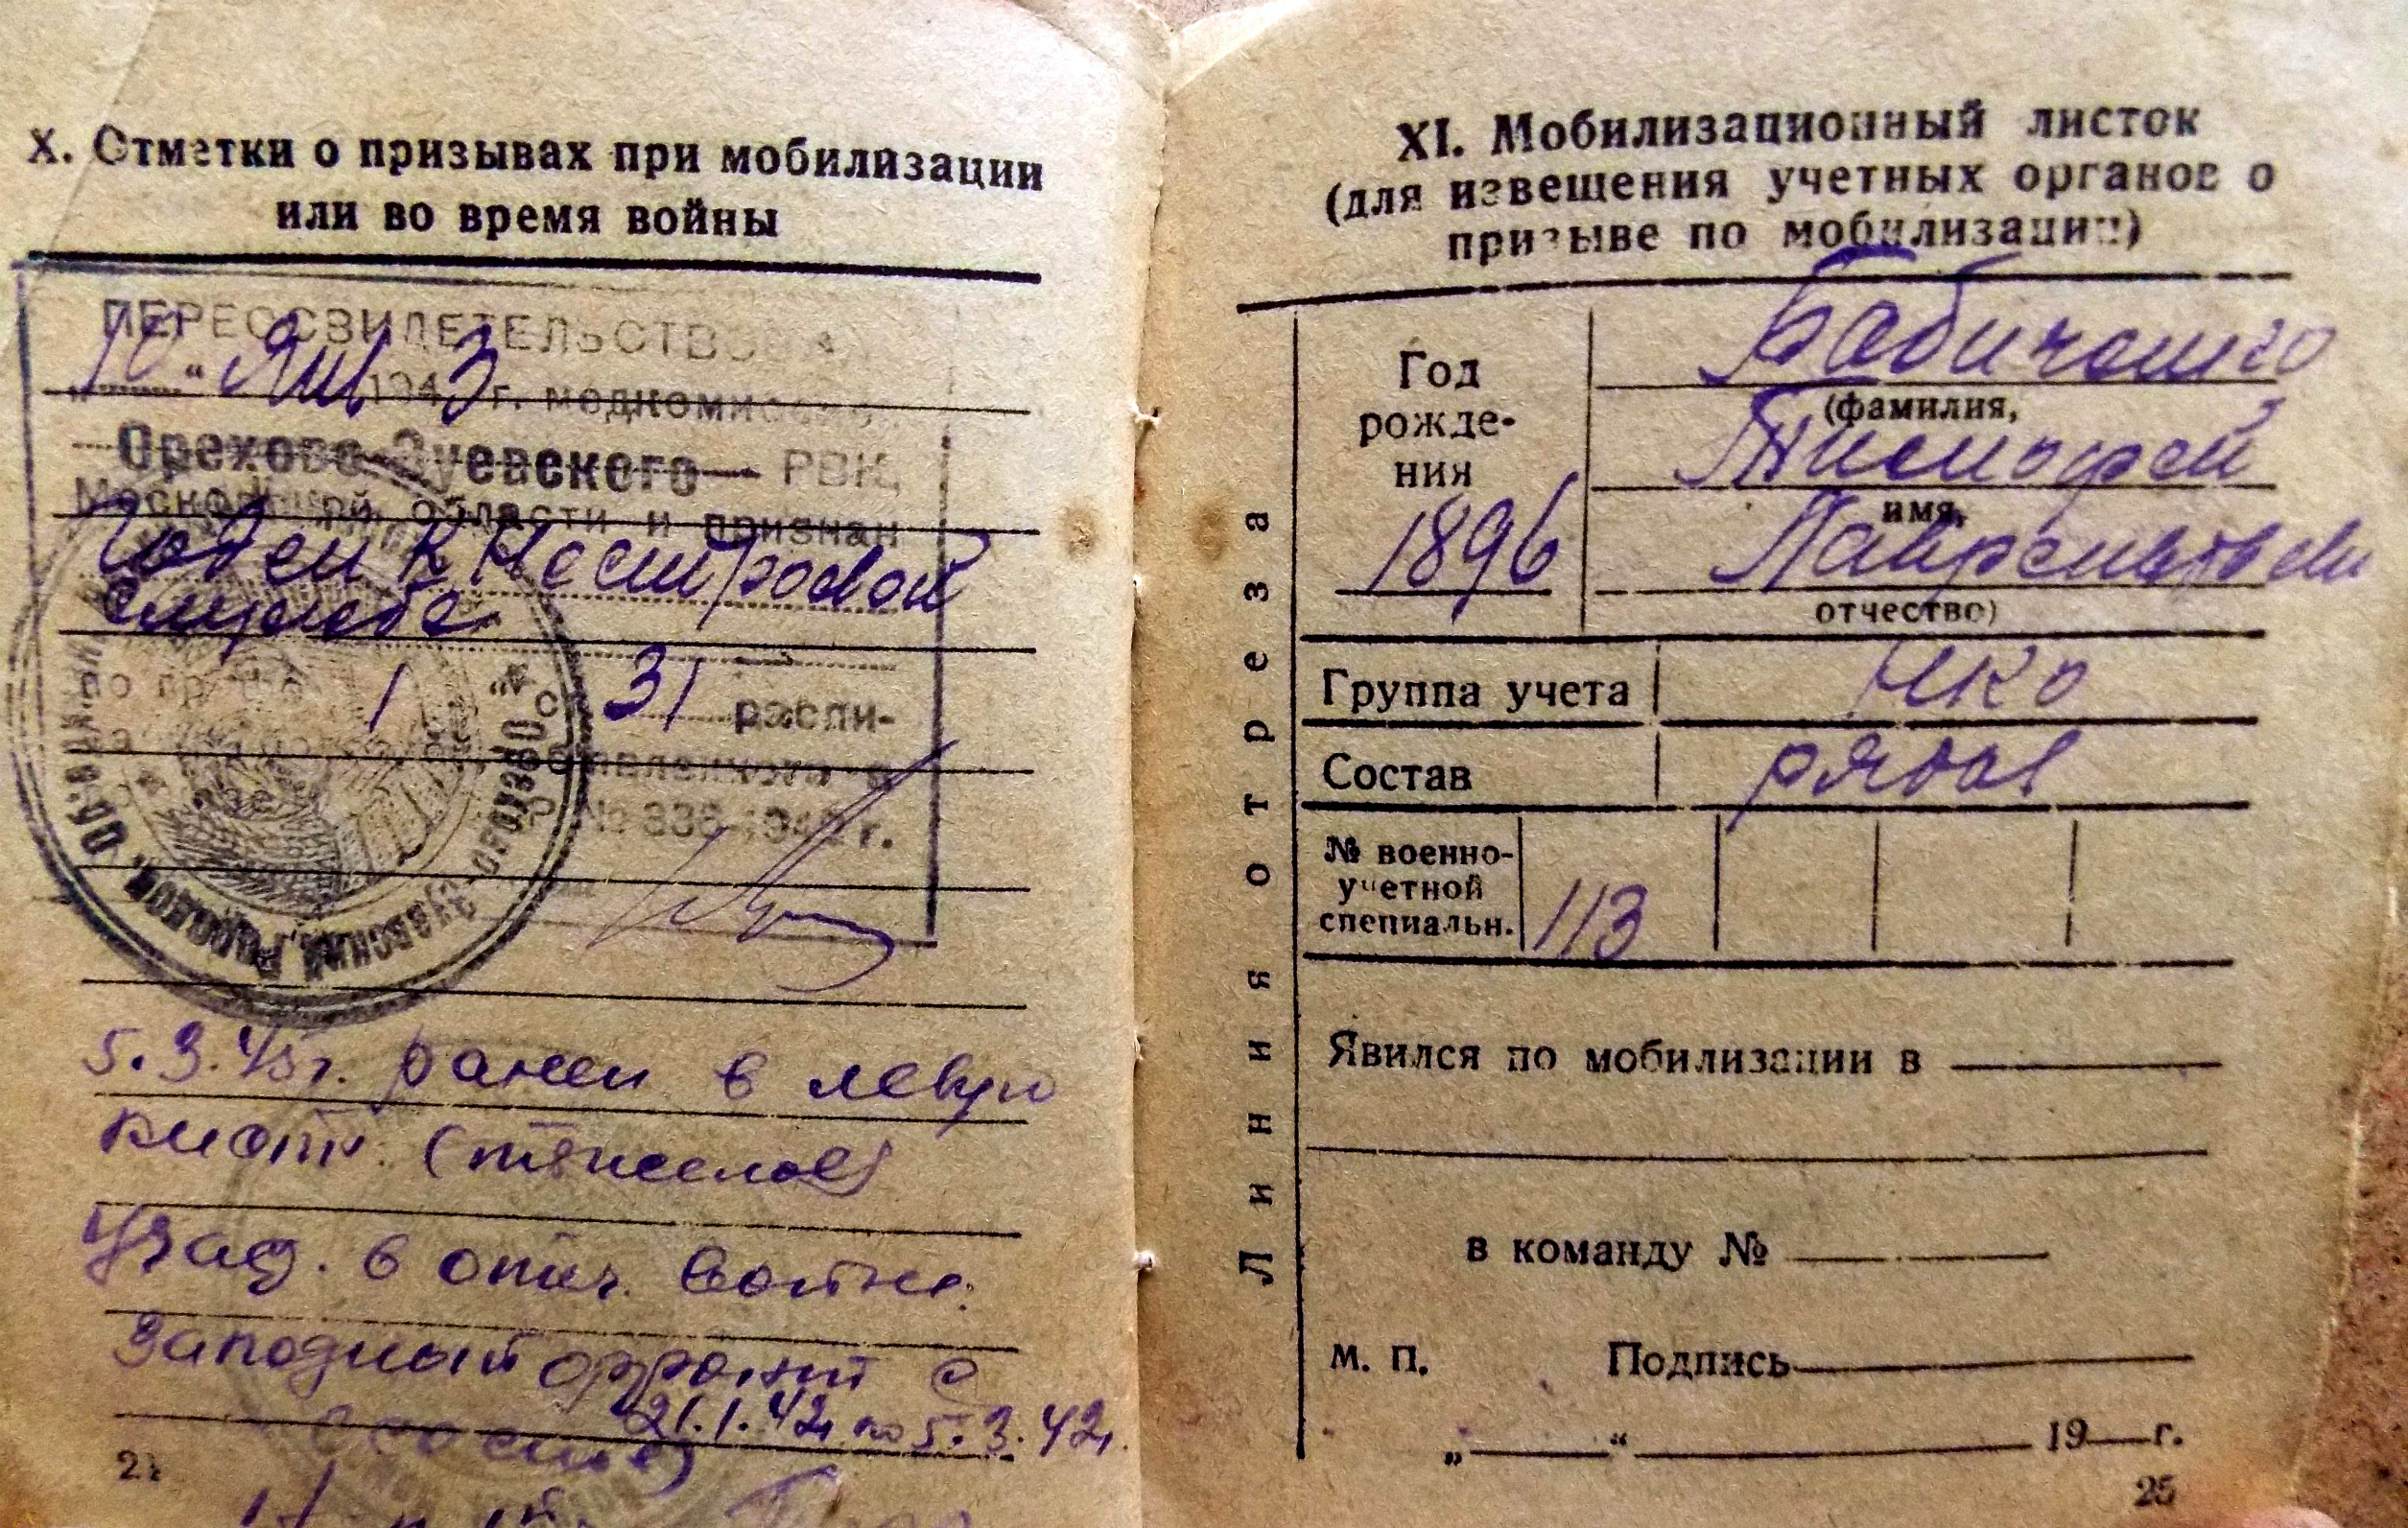 X. Отметки о призывах при мобилизации
или во время войны
ПЕРЕОСВИДЕТЕЛЬСТВОВА
10 " Янв 1943 г. медкомиссией
Орехово-Зуевского РВК,
Московской области и признан
Годен к Нестроевой
службе
по гр 1 ст 31 распи-
объявленного в
Р № 336-1942 г.
Орехово-Зуевский Районный
5.3.45г. ранен в левую
кисть (тяжелое)
Участ. в отеч. войне.
Западный фронт с
21.1.42 по 5.3.42
XI. Мобилизационный листок
(для извещения учетных органов о
призыве по мобилизации)
Линия отреза
Год
рожде-
ния
1896
(фамилия,
Тимофей
имя,
Лаврентьеви
отчество)
Группа учета НКО
Состав рядов
№ военно-
учетной
специальн. 113
Явился по мобилизации в
в команду №
М. П. Подпись
„ “ 19 г.
25